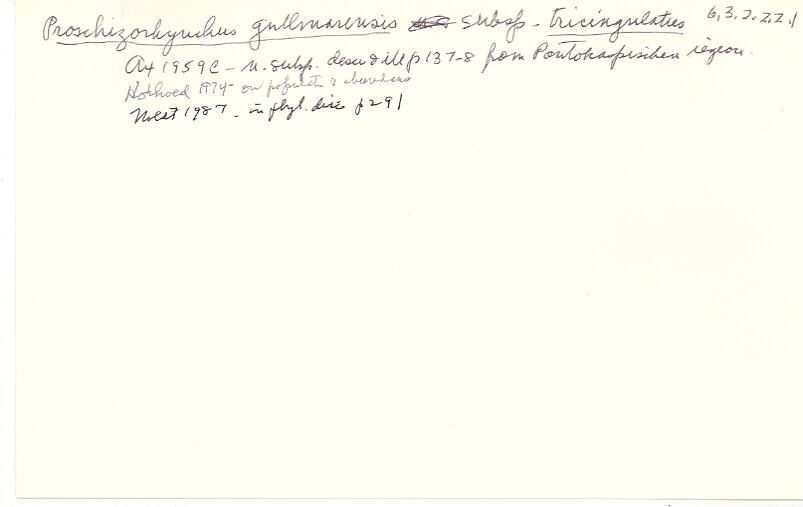 Proschizorhynchus gullmarensis subsp. tricingulatus 6,3,2.2,2.1
Ax 1959c - n. subsp. descr & ill p 137-8 from Pontokaspischen region.
1974 - on population & abundans
1987 - in phyl. disc p 291